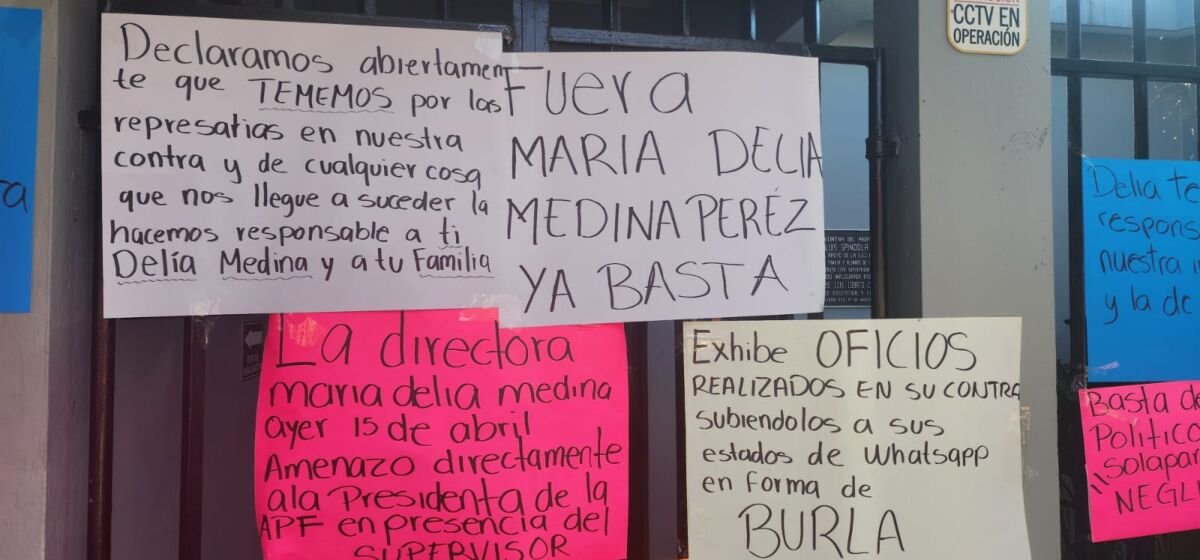 Declaramos abiertamen
te que TEMEMOS por las
represatias en nuestra
contra y de cualquier cosa
que nos llegue a suceder la
hacemos responsable a ti
Delía Medina y a tu Familia
Fuera
MARIA DELIA
MEDINA PERÉZ
YA BASTA
La directora
maria delia medina
ayer 15 de abril
Amenazo directamente
ala Presidenta de la
APF en presencia del
SUPERVISOR
Exhibe OFICIOS
REALIZADOS EN SU CONTRA
subiendolos a sus
estados de Whatsapp
en forma de
BURLA
CCTV EN
OPERACIÓN
Delia te
respons
nuestra i
y la de
Basta de
Politico
solapar
NEGLI